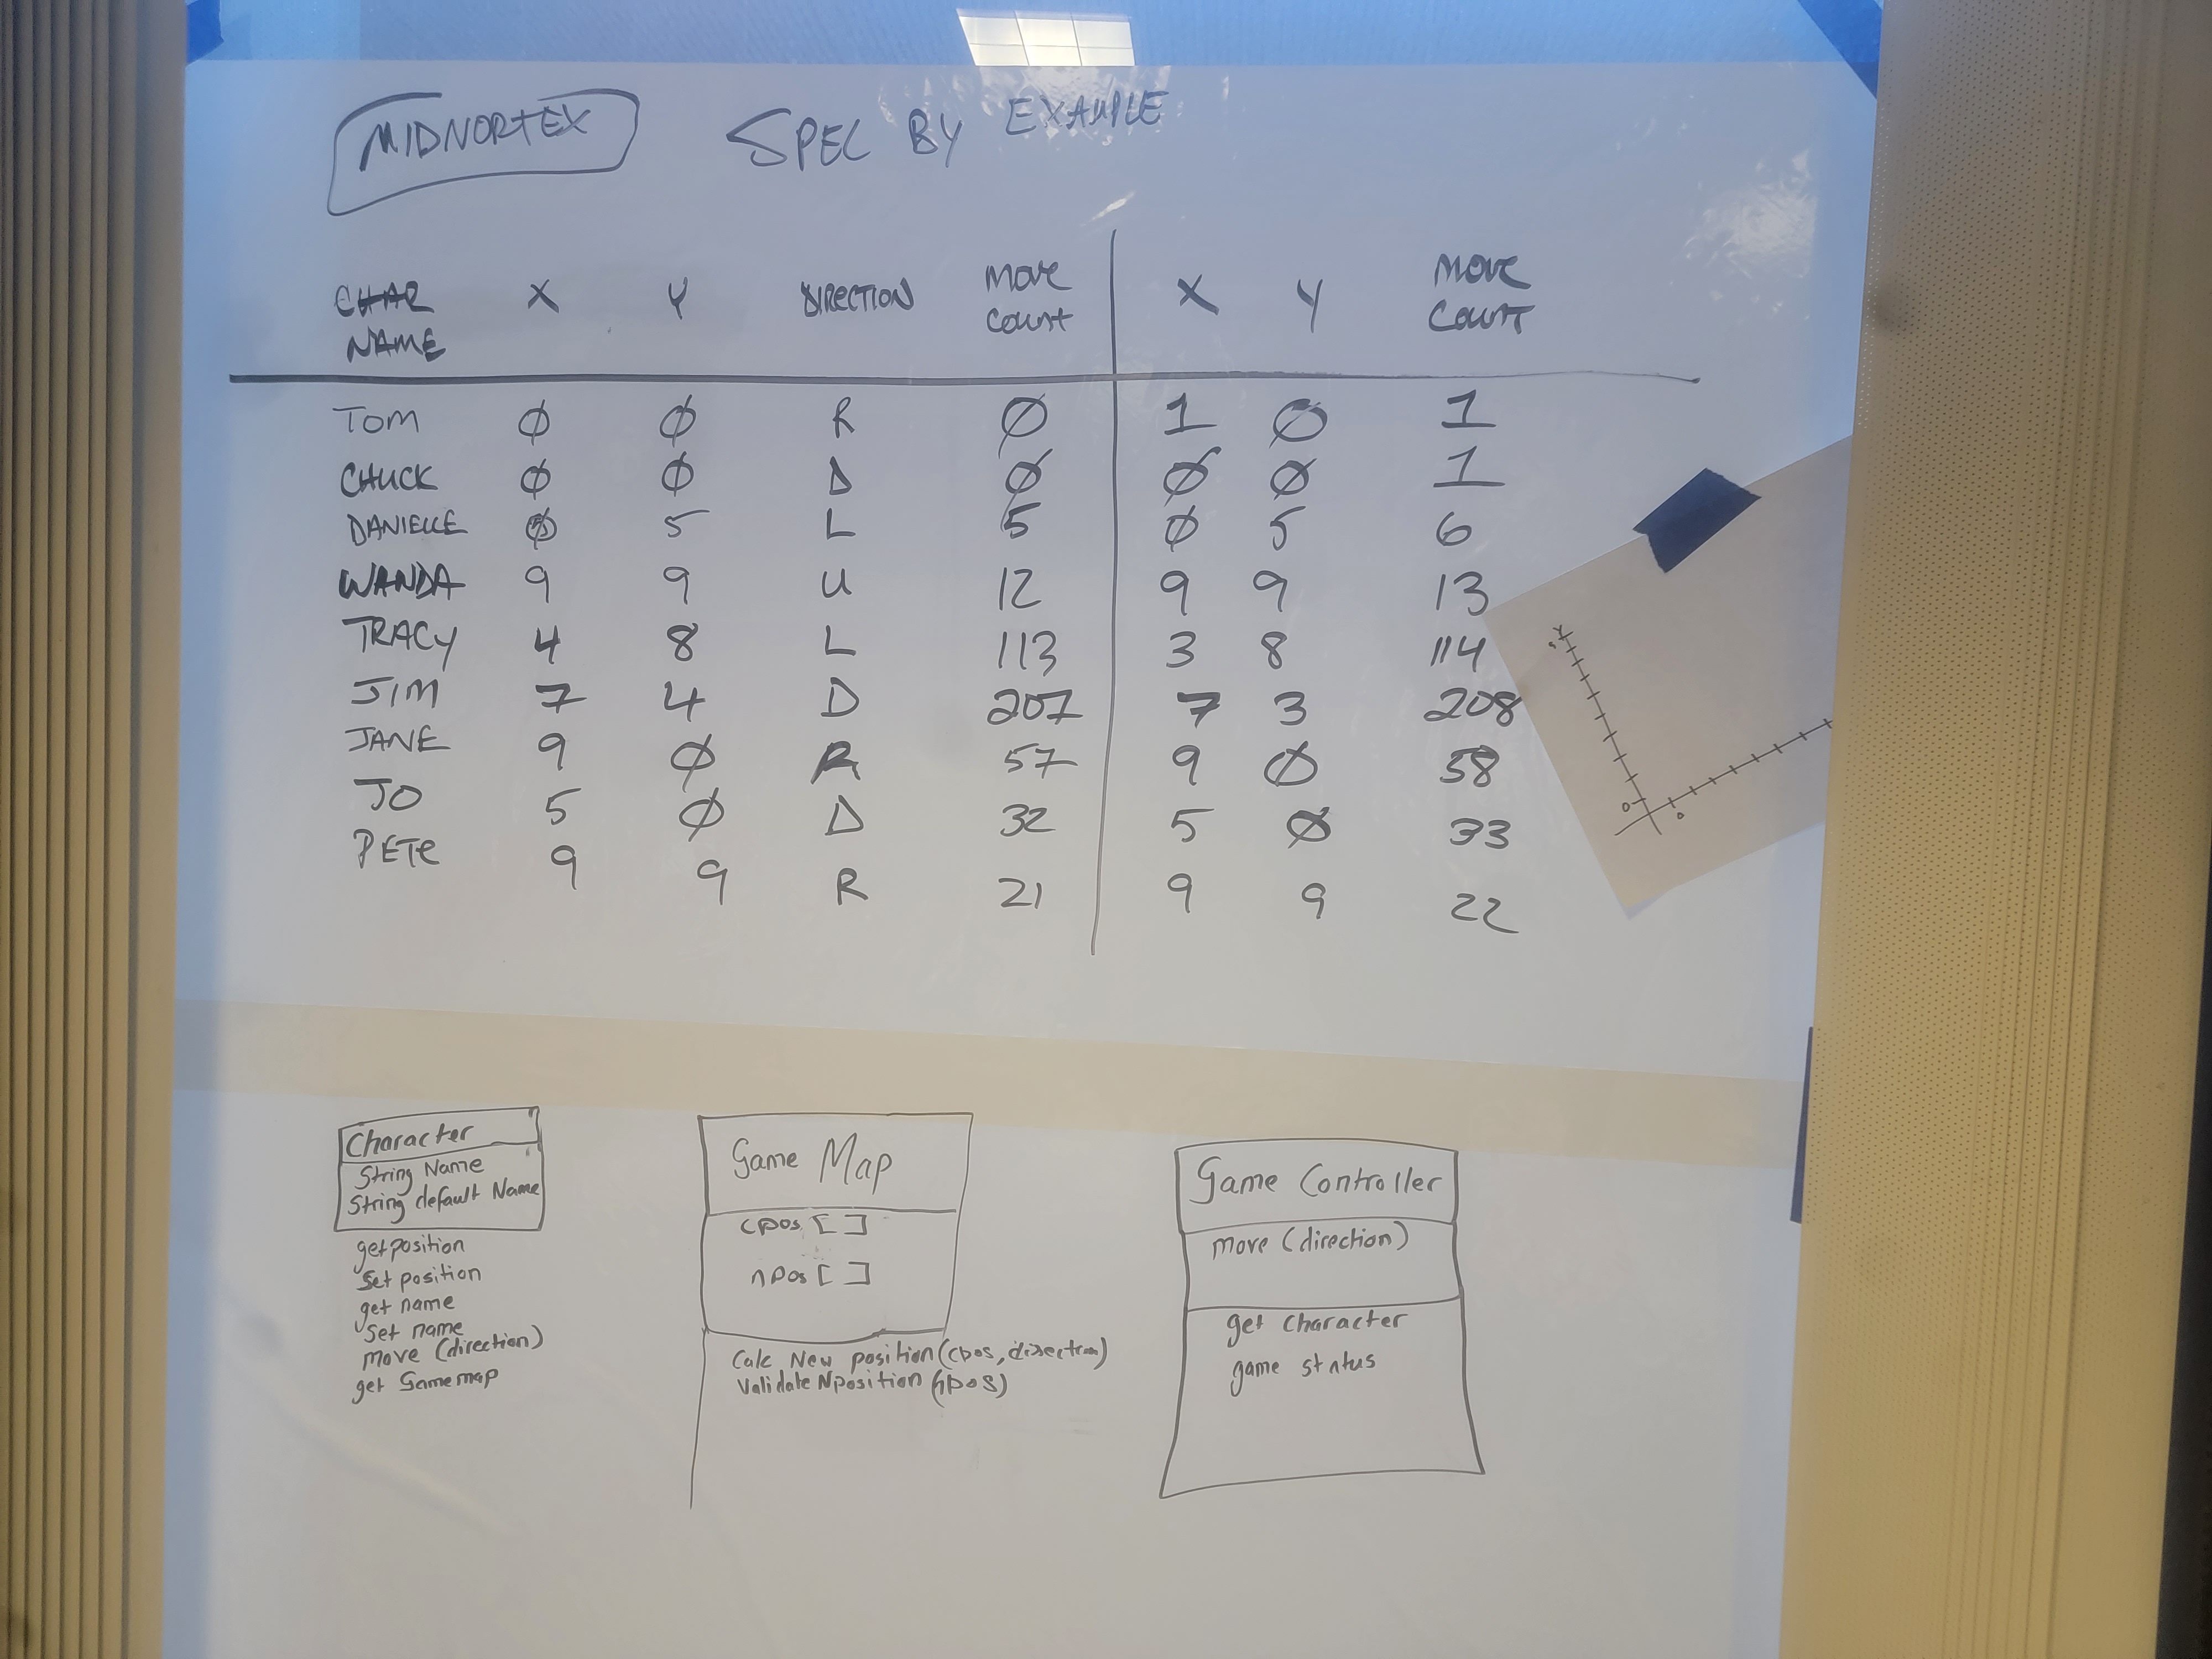 MIDNORTEX SPEC BY EXAMPLE
CHAR NAME X Y DIRECTION MOVE COUNT X Y MOVE COUNT
TOM Ø Ø R Ø 1 Ø 1
CHUCK Ø Ø D Ø Ø Ø 1
DANIELLE Ø 5 L 5 Ø 5 6
WANDA 9 9 U 12 9 9 13
TRACY 4 8 L 113 3 8 114
JIM 7 4 D 207 7 3 208
JANE 9 Ø R 57 9 Ø 58
JO 5 Ø D 32 5 Ø 33
PETE 9 9 R 21 9 9 22
Y
9
0
0
Character
String Name
String default Name
getposition
Set position
get name
Set name
move (direction)
get Gamemap
Game Map
cpos [ ]
npos [ ]
Calc New position (cpos, direction)
Validate Nposition (npos)
Game Controller
move (direction)
get character
game status